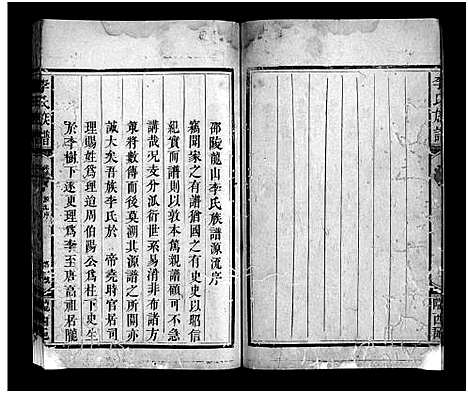 邵陵龍山李氏族譜源流序
竊聞家之有譜猶國之有史史以昭信
紀實而譜則以敦本篤親譜顧可不急
講哉況支分派衍世系易消非布諸方
策將數傳而後莫溯其源譜之所關亦
誠大矣吾族李氏於 帝堯時官居司
理賜姓為理道周伯陽公為柱下史生
於李樹下遂更理為李至唐高祖居隴
李氏族譜
李氏族譜